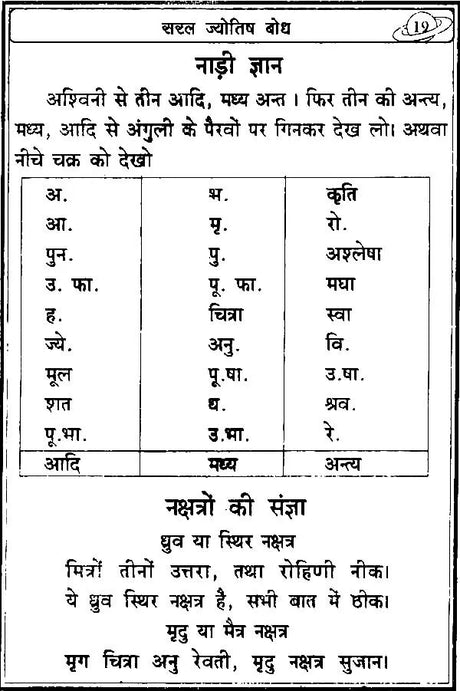 सरल ज्योतिष बोध 19
नाड़ी ज्ञान
अश्विनी से तीन आदि, मध्य अन्त । फिर तीन की अन्त्य,
मध्य, आदि से अंगुली के पैरवों पर गिनकर देख लो। अथवा
नीचे चक्र को देखो
अ. भ. कृति
आ. मृ. रो.
पुन. पु. अश्लेषा
उ. फा. पू. फा. मघा
ह. चित्रा स्वा
ज्ये. अनु. वि.
मूल पू.षा. उ.षा.
शत ध. श्रव.
पू.भा. उ.भा. रे.
आदि मध्य अन्त्य
नक्षत्रों की संज्ञा
ध्रुव या स्थिर नक्षत्र
मित्रों तीनों उत्तरा, तथा रोहिणी नीक।
ये ध्रुव स्थिर नक्षत्र है, सभी बात में ठीक।
मृदु या मैत्र नक्षत्र
मृग चित्रा अनु रेवती, मृदु नक्षत्र सुजान।